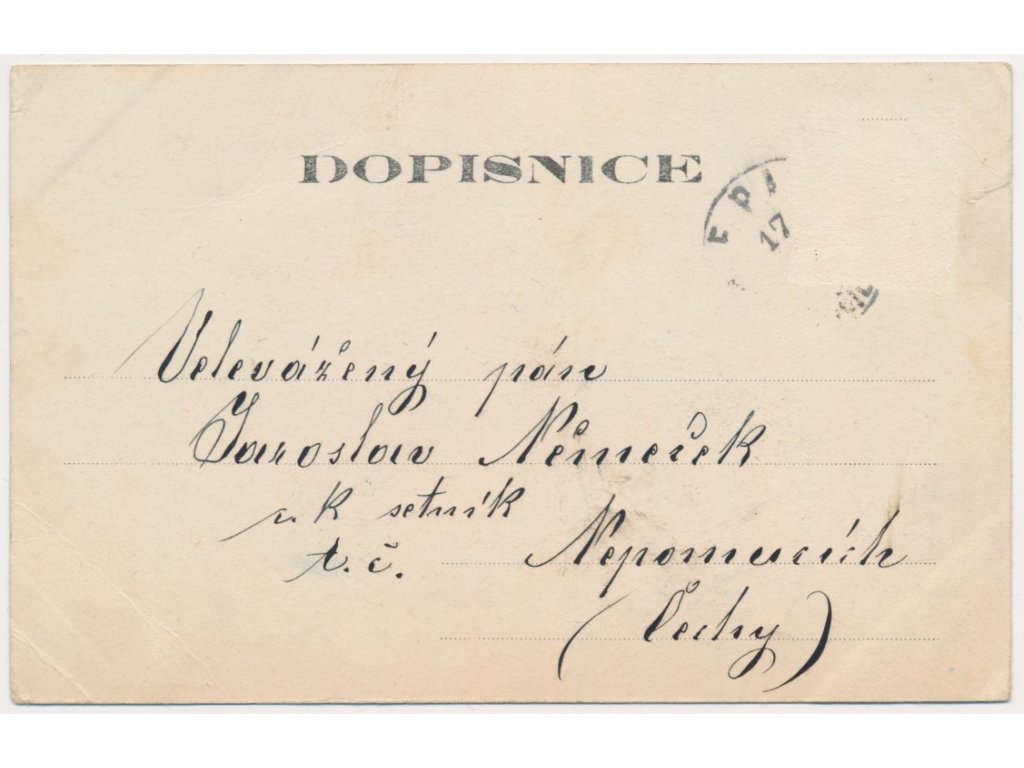 DOPISNICE
17
Velevážený pán
Jaroslav Němeček
c. k setník
t. č. Nepomucích
(Čechy)